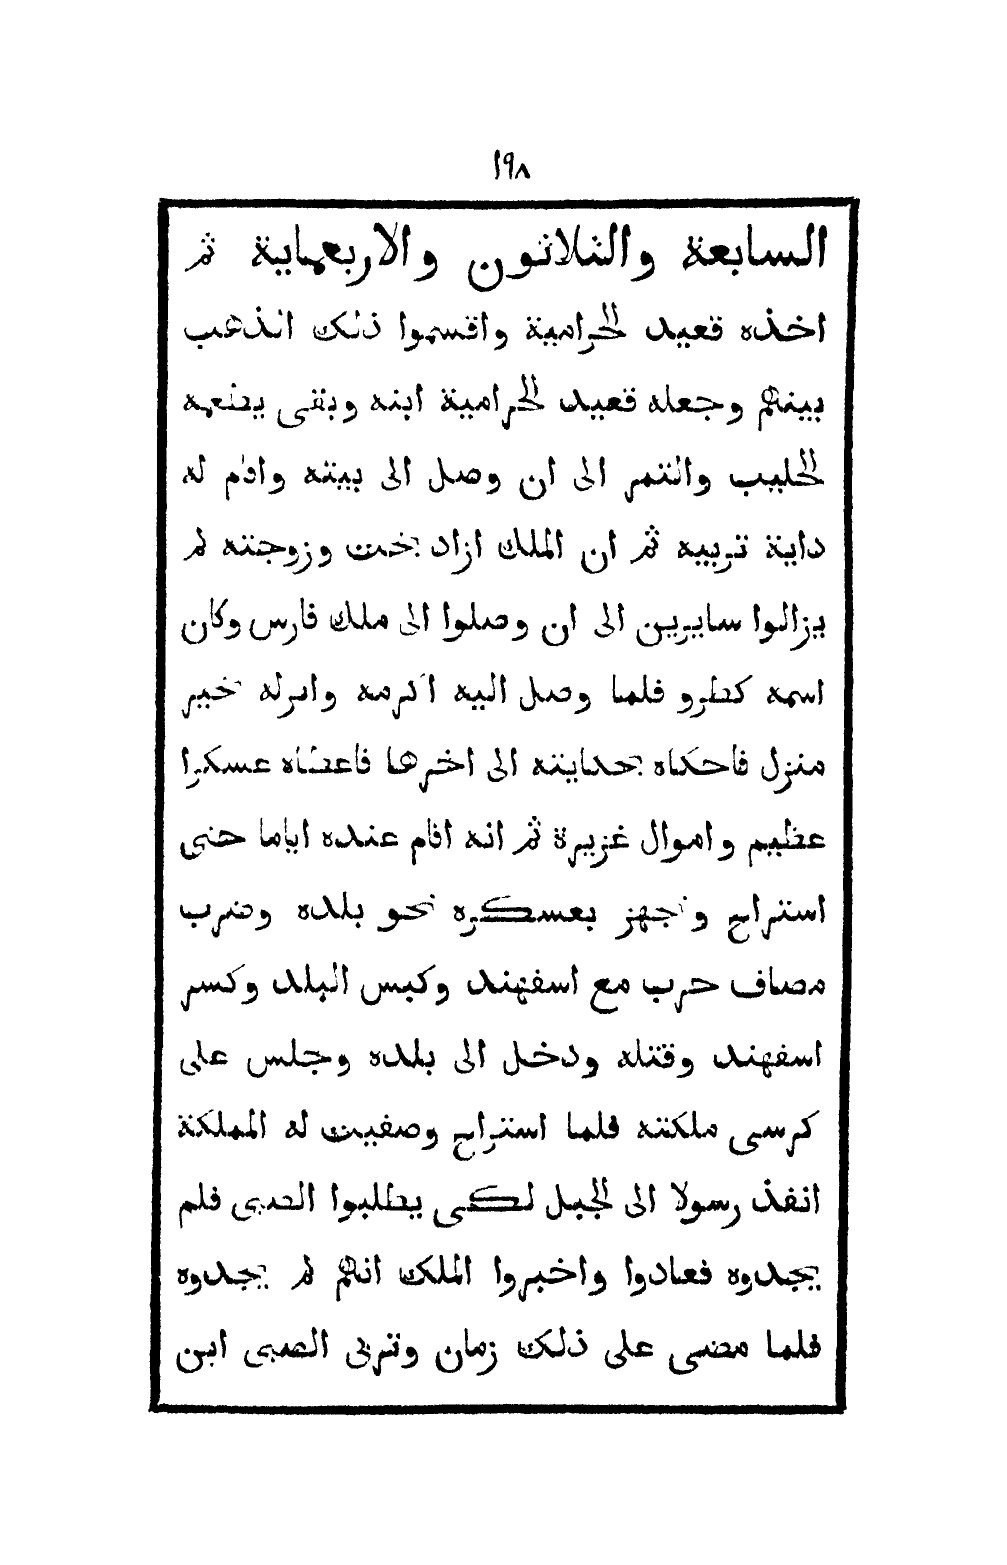 ١٩٨
السابعة والثلاثون والاربعماية ثم
اخذه قعيد الحرامية واقسموا ذلك الذهب
بينهم وجعله قعيد الحرامية ابنه وبقى يطعمه
الحليب والتمر الى ان وصل الى بيته واقام له
داية تربيه ثم ان الملك ازاد بخت وزوجته لم
يزالوا سايرين الى ان وصلوا الى ملك فارس وكان
اسمه كطرو فلما وصل اليه اكرمه وانزله خير
منزل فاحكاه بحدايته الى اخرها فاعطاه عسكرا
عظيم واموال غزيرة ثم انه اقام عنده اياما حتى
استراح وتجهز بعسكره نحو بلده وضرب
مصاف حرب مع اسفهند وكبس البلد وكسر
اسفهند وقتله ودخل الى بلده وجلس على
كرسى ملكته فلما استراح وصفيت له المملكة
انفذ رسولا الى الجبل لكى يطلبوا الصبى فلم
يجدوه فعادوا واخبروا الملك انهم لم يجدوه
فلما مضى على ذلك زمان وتربى الصبى ابن